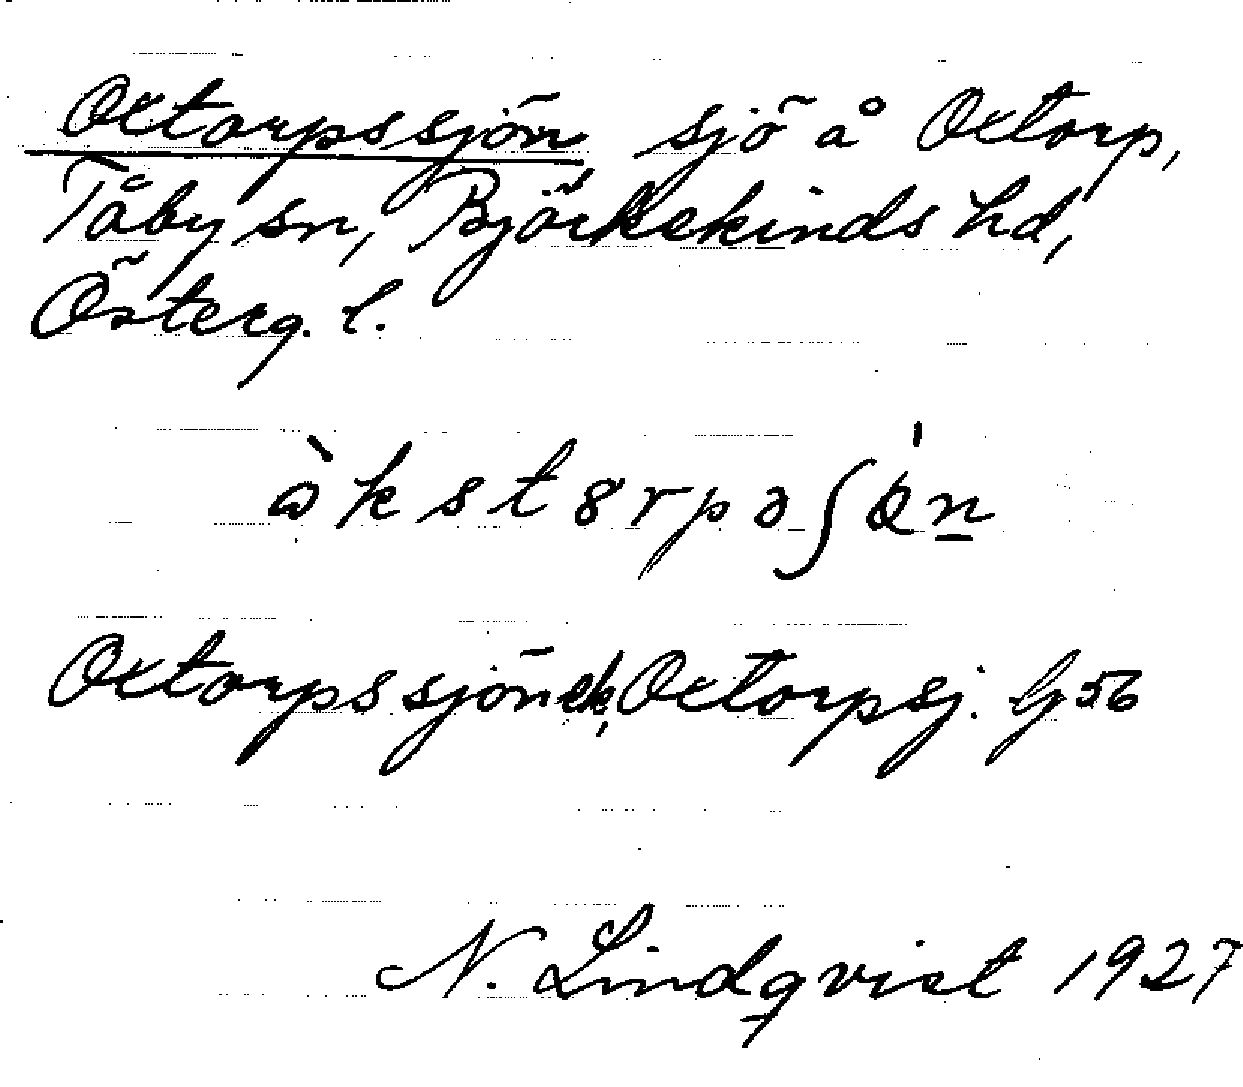 Oxtorpssjön sjö å Oxtorp,
Tåby sn, Björkekinds hd,
Österg. l.
Oxtorpssjön ek, Oxtorpsj. Gj 56
N. Lindqvist 1927